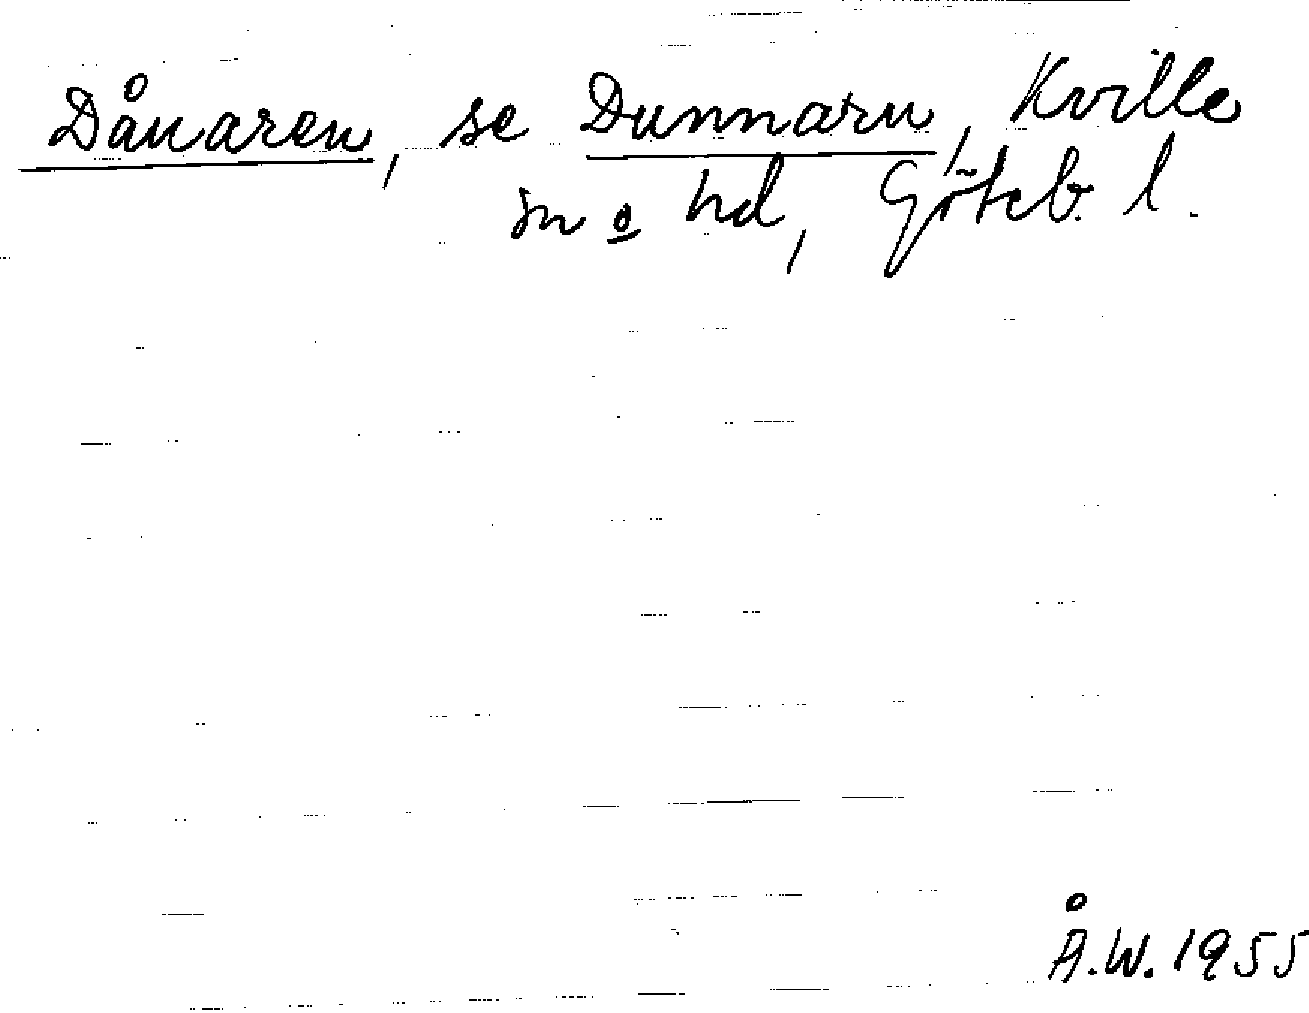 Dånaren, se Dunnarn, Kville
sn o hd, Göteb. l.
Å.W. 1955